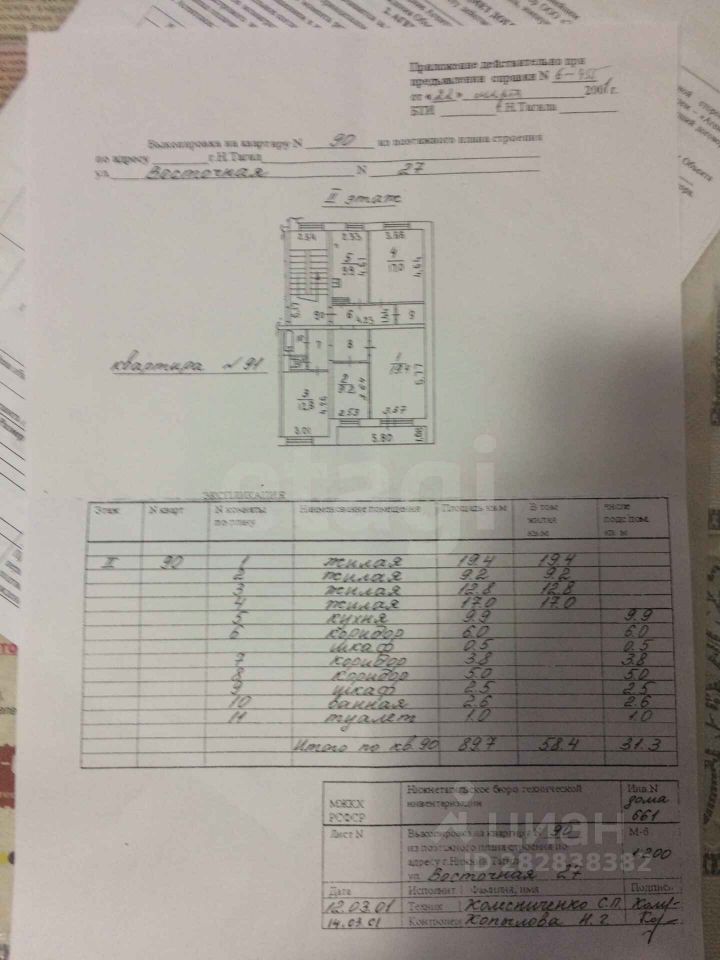 Приложение действительно при
предъявлении справки N 6-451
от «22» марта 2001 г.
БТИ г.Н.Тагила
Выкопировка на квартиру N 90 из поэтажного плана строения
по адресу г.Н.Тагил
ул Восточная N 27
II этаж
2.54 2.33 3.66
5 9.9 4.61 4 17.0 4.64
90 6 4.23 9
10 7 8 1 19.4 5.77
квартира №91
3 12.8 4.26 2 9.2 3.64
3.01 2.53 3.37
5.80
etagi
ЭКСПЛИКАЦИЯ
Этаж N кварт N комнаты по плану Наименование помещения Площадь кв.м В том жилая кв.м числе подс.пом. кв.м
II 90 1 жилая 19.4 19.4
2 жилая 9.2 9.2
3 жилая 12.8 12.8
4 жилая 17.0 17.0
5 кухня 9.9 9.9
6 коридор 6.0 6.0
шкаф 0.5 0.5
7 коридор 3.8 3.8
8 коридор 5.0 5.0
9 шкаф 2.5 2.5
10 ванная 2.6 2.6
11 туалет 1.0 1.0
Итого по кв.90 89.7 58.4 31.3
МЖКХ РСФСР Нижнетагильское бюро технической инвентаризации Инв.N дома 661
циан
Лист N Выкопировка на квартиру N 90 М-б
из поэтажного плана строения по 1:200
адресу г.Нижний Тагил
ул. Восточная 27
Дата Исполнит. Фамилия, имя Подпись
12.03.01 Техник Колесниченко С.П.
14.03.01 Контролер Копылова Н.Г.